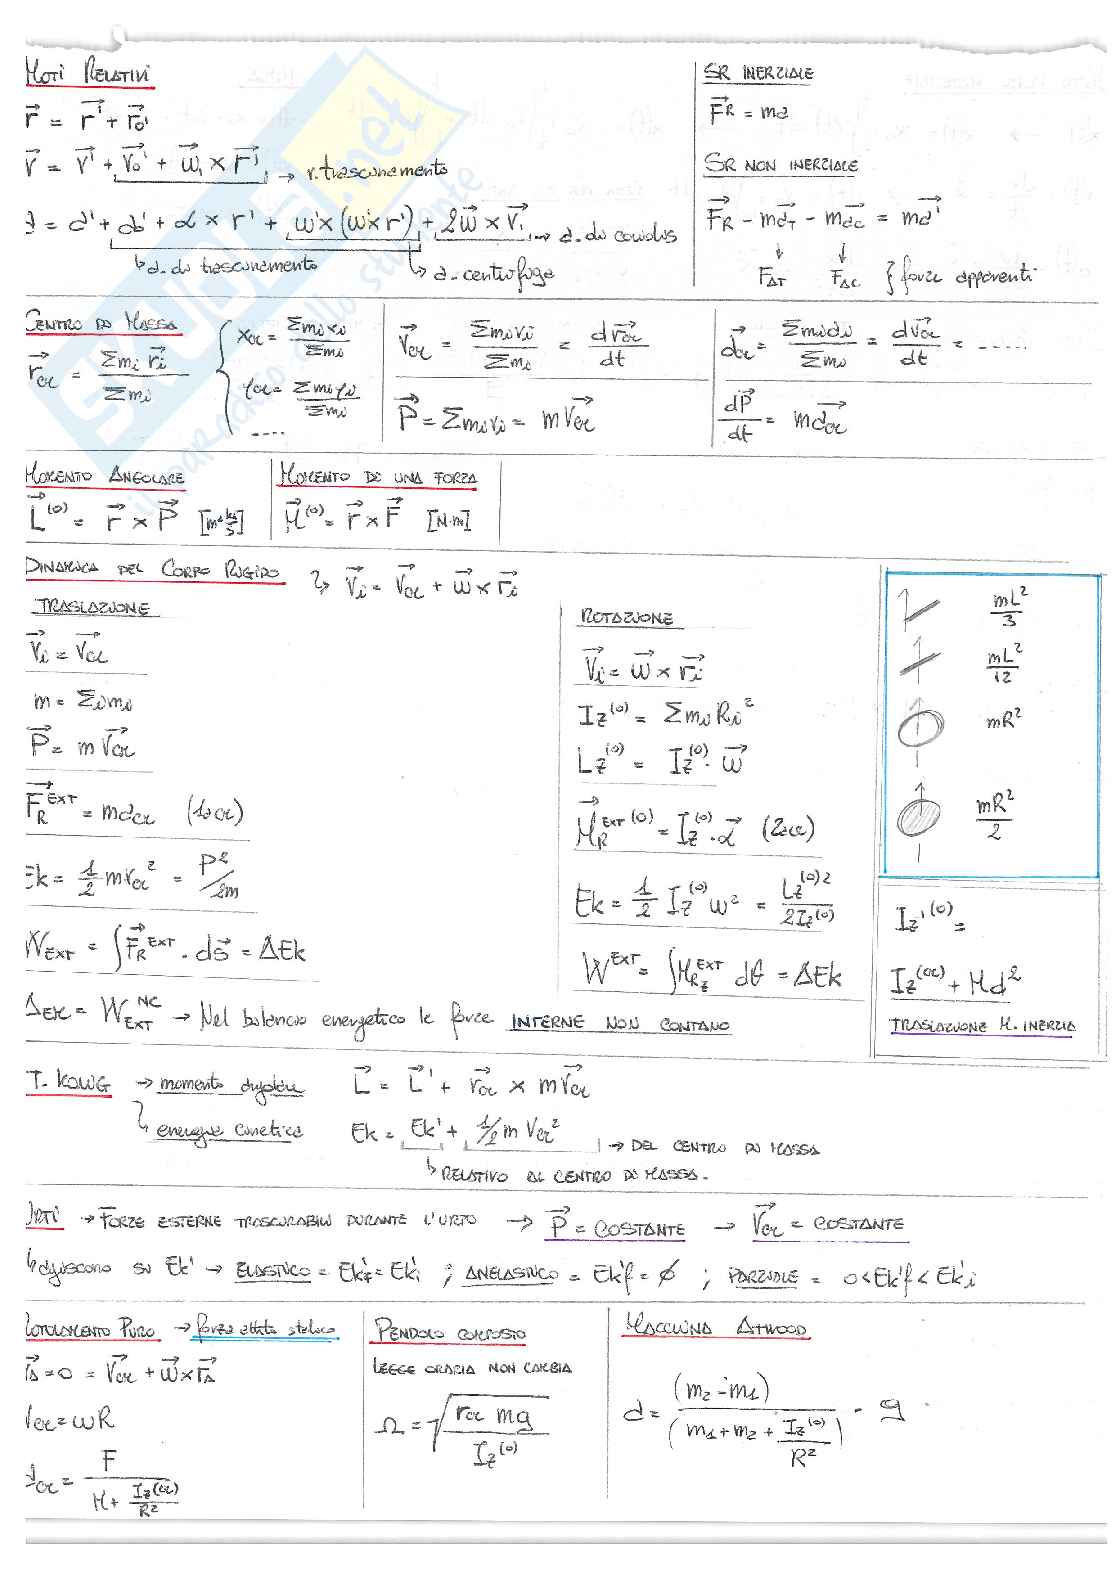 MOTI RELATIVI
r⃗ = r⃗' + r⃗₀'
v⃗ = v⃗' + v⃗₀' + ω⃗₁ × r⃗' → v. trascinamento
a = a' + a₀' + α × r' + ω × (ω × r') + 2ω⃗ × v⃗₁ → a. di coriolis
↳ a. di trascinamento
↳ a. centrifuga
SR INERZIALE
F⃗ᴿ = ma
SR NON INERZIALE
F⃗_R - ma⃗_T - ma⃗_C = ma⃗'
F_AT F_AC } forze apparenti
CENTRO DI MASSA
r⃗_CM = Σmᵢ r⃗ᵢ / Σmᵢ
x_CM = Σmᵢxᵢ / Σmᵢ
y_CM = Σmᵢyᵢ / Σmᵢ
....
v⃗_CM = Σmᵢvᵢ / Σmᵢ = dr⃗_CM / dt
P⃗ = Σmᵢvᵢ = m v⃗_CM
a⃗_CM = Σmᵢaᵢ / Σmᵢ = dv⃗_CM / dt = .....
dP⃗ / dt = ma⃗_CM
MOMENTO ANGOLARE
L⃗⁽⁰⁾ = r⃗ × P⃗ [m² kg/s]
MOMENTO DI UNA FORZA
M⃗⁽⁰⁾ = r⃗ × F⃗ [N·m]
DINAMICA DEL CORPO RIGIDO ↳ v⃗ᵢ = v⃗_CM + ω⃗ × r⃗ᵢ
TRASLAZIONE
v⃗ᵢ = v⃗_CM
m = Σᵢmᵢ
P⃗ = m v⃗_CM
F⃗_R^EXT = ma_CM (1ª CM)
Ek = 1/2 m v_CM² = P²/2m
W_EXT = ∫F⃗_R^EXT · ds⃗ = ΔEk
ΔEK = W_EXT^NC → Nel bilancio energetico le forze INTERNE NON CONTANO
ROTAZIONE
v⃗ᵢ = ω⃗ × r⃗ᵢ
I_z⁽⁰⁾ = Σmᵢ Rᵢ²
L_z⁽⁰⁾ = I_z⁽⁰⁾ · ω⃗
M⃗_R^EXT⁽⁰⁾ = I_z⁽⁰⁾ · α⃗ (2ª CM)
Ek = 1/2 I_z⁽⁰⁾ ω² = L_z⁽⁰⁾² / 2I_z⁽⁰⁾
W^EXT = ∫M_Rz^EXT dθ = ΔEk
mL²/3
mL²/12
mR²
mR²/2
I_z'⁽⁰⁾ =
I_z^(CM) + Md²
TRASLAZIONE M. INERZIA
T. KONIG → momento angolare L⃗ = L⃗' + r⃗_CM × m v⃗_CM
↳ energia cinetica Ek = Ek' + 1/2 m V_CM² → DEL CENTRO DI MASSA
↳ RELATIVO AL CENTRO DI MASSA.
URTI → FORZE ESTERNE TRASCURABILI DURANTE L'URTO → P⃗ = COSTANTE → V⃗_CM = COSTANTE
↳ agiscono su Ek' → ELASTICO = Ek'f = Ek'i ; ANELASTICO = Ek'f = ∅ ; PARZIALE = 0 < Ek'f < Ek'i
ROTOLAMENTO PURO → forza attrito statico
v⃗_A = 0 = v⃗_CM + ω⃗ × r⃗_A
v_CM = ωR
a_CM = F / (M + I_z(CM)/R²)
PENDOLO COMPOSTO
LEGGE ORARIA NON CAMBIA
Ω = √(r_CM mg / I_z⁽⁰⁾)
MACCHINA ATWOOD
a = (m₂ - m₁) / (m₁ + m₂ + I_z⁽⁰⁾/R²) · g